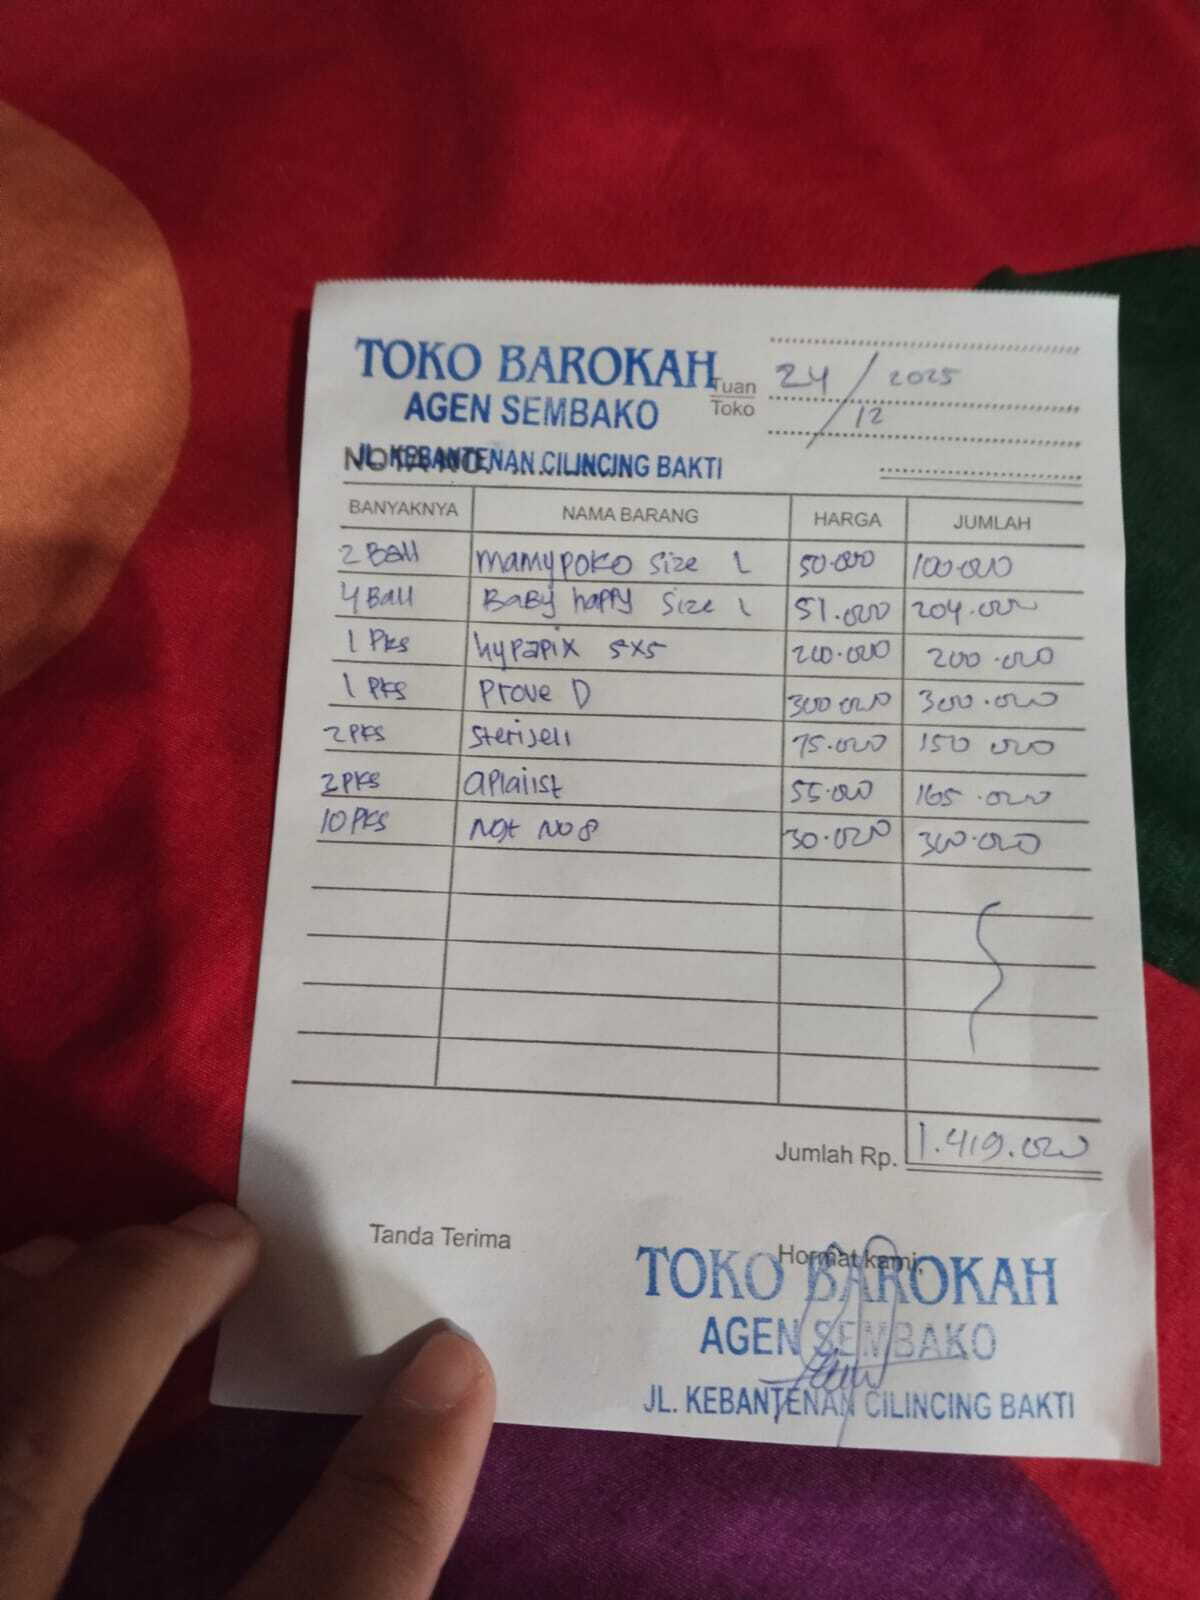 TOKO BAROKAH
AGEN SEMBAKO
JL. KEBANTENAN CILINCING BAKTI
Tuan
Toko
24/12 2025
NOTA NO.
BANYAKNYA NAMA BARANG HARGA JUMLAH
2 Ball mamypoko size L 50.000 100.000
4 Ball Baby happy size L 51.000 204.000
1 Pks hypapix 5x5 200.000 200.000
1 Pks Prove D 300.000 300.000
2 Pks sterijell 75.000 150 000
3 Pks aplaiist 55.000 165.000
10 Pks NGt No 8 30.000 300.000
Jumlah Rp. 1.419.000
Tanda Terima
Hormat kami,
TOKO BAROKAH
AGEN SEMBAKO
JL. KEBANTENAN CILINCING BAKTI